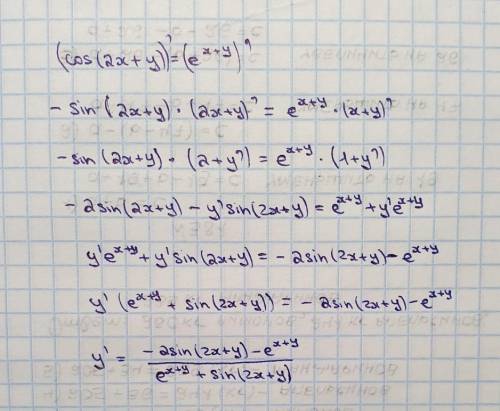 (cos(2x+y))' = (e^{x+y})'
-sin(2x+y)·(2x+y)' = e^{x+y}·(x+y)'
-sin(2x+y)·(2+y') = e^{x+y}·(1+y')
-2sin(2x+y) - y'sin(2x+y) = e^{x+y} + y'e^{x+y}
y'e^{x+y} + y'sin(2x+y) = -2sin(2x+y) - e^{x+y}
y'(e^{x+y} + sin(2x+y)) = -2sin(2x+y) - e^{x+y}
y' = \frac{-2sin(2x+y) - e^{x+y}}{e^{x+y} + sin(2x+y)}